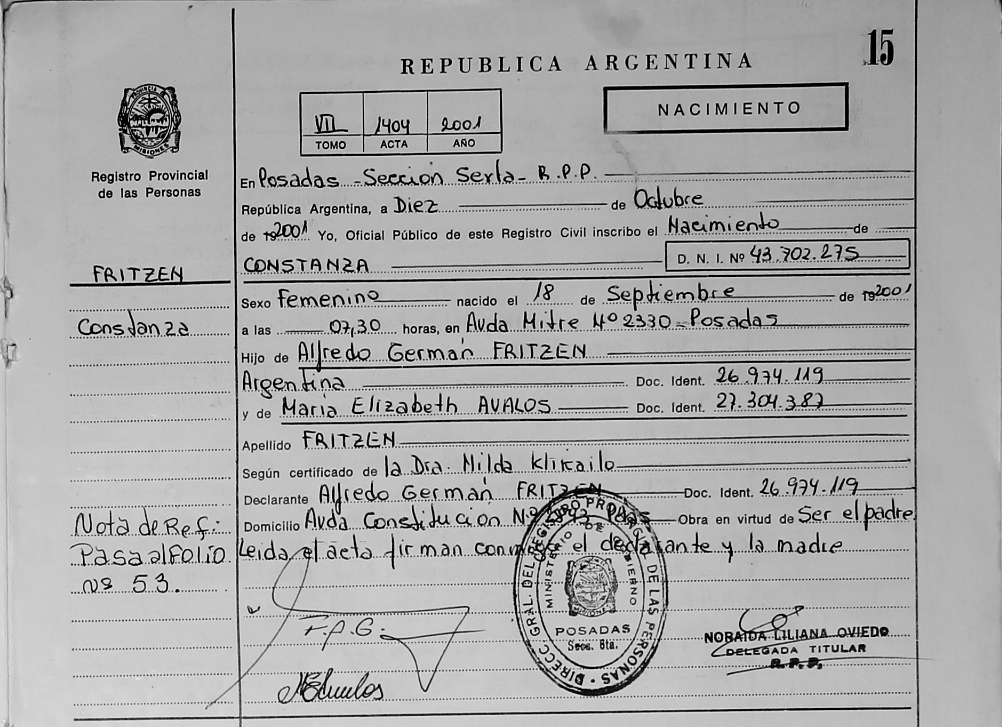 15
REPUBLICA ARGENTINA
NACIMIENTO
VII 1404 2001
TOMO ACTA AÑO
PROVINCIA DE MISIONES
Registro Provincial
de las Personas
FRITZEN
Constanza
En Posadas - Sección Sexta - R.P.P.
República Argentina, a Diez de Octubre
de 2001 Yo, Oficial Público de este Registro Civil inscribo el Nacimiento de
CONSTANZA D. N. I. Nº 43.702.275
Sexo Femenino nacido el 18 de Septiembre de 2001
a las 07,30 horas, en Avda Mitre Nº 2330 - Posadas
Hijo de Alfredo Germán FRITZEN
Argentina Doc. Ident. 26.974.119
y de María Elizabeth AVALOS Doc. Ident. 27.304.387
Apellido FRITZEN
Según certificado de la Dra. Nilda Klikailo
Declarante Alfredo Germán FRITZEN Doc. Ident. 26.974.119
Domicilio Avda Constitucion Nº Obra en virtud de Ser el padre
Leida el acta firman el declarante y la madre
Nota de Ref:
Pasa al Folio
nº 53.
DIRECC. GRAL. DEL REGISTRO PROVINCIAL DE LAS PERSONAS
MINISTERIO DE GOBIERNO
MISIONES
POSADAS
Secc. 6ta.
F.A.G.
NORAIDA LILIANA OVIEDO
DELEGADA TITULAR
R.P.P.